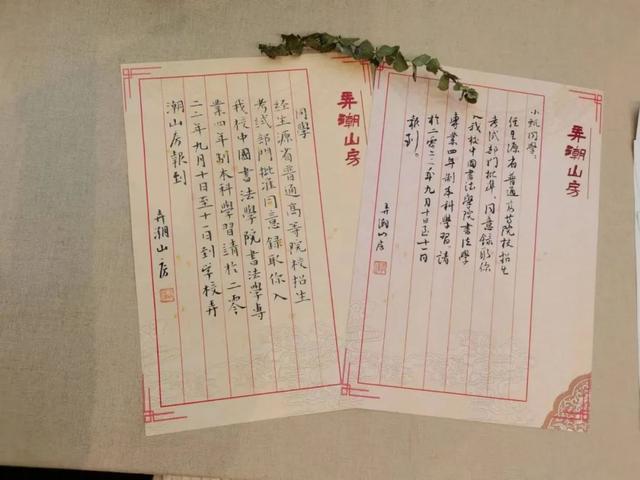 弄潮山房
同学：
经生源省普通高等院校招生
考试部门批准，同意录取你
入我校中国书法学院书法学
专业四年制本科学习。请
於二零二二年九月十日至十一日
报到。
弄潮山房
弄潮山房
同學
经生源省普通高等院校招生
考試部門批准同意錄取你入
我校中國書法學院書法學專
業四年制本科學習請於二零
二二年九月十日至十一日到学校弄
潮山房報到
弄潮山房